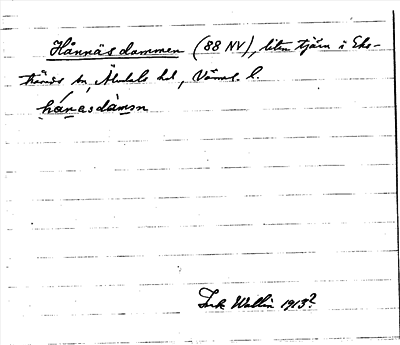 Hånnäsdammen (88 NV), liten tjärn i Eks-
härads sn, Älvdals hd, Värml. l.
hánasdàmsn
Erik Wallin 1913?